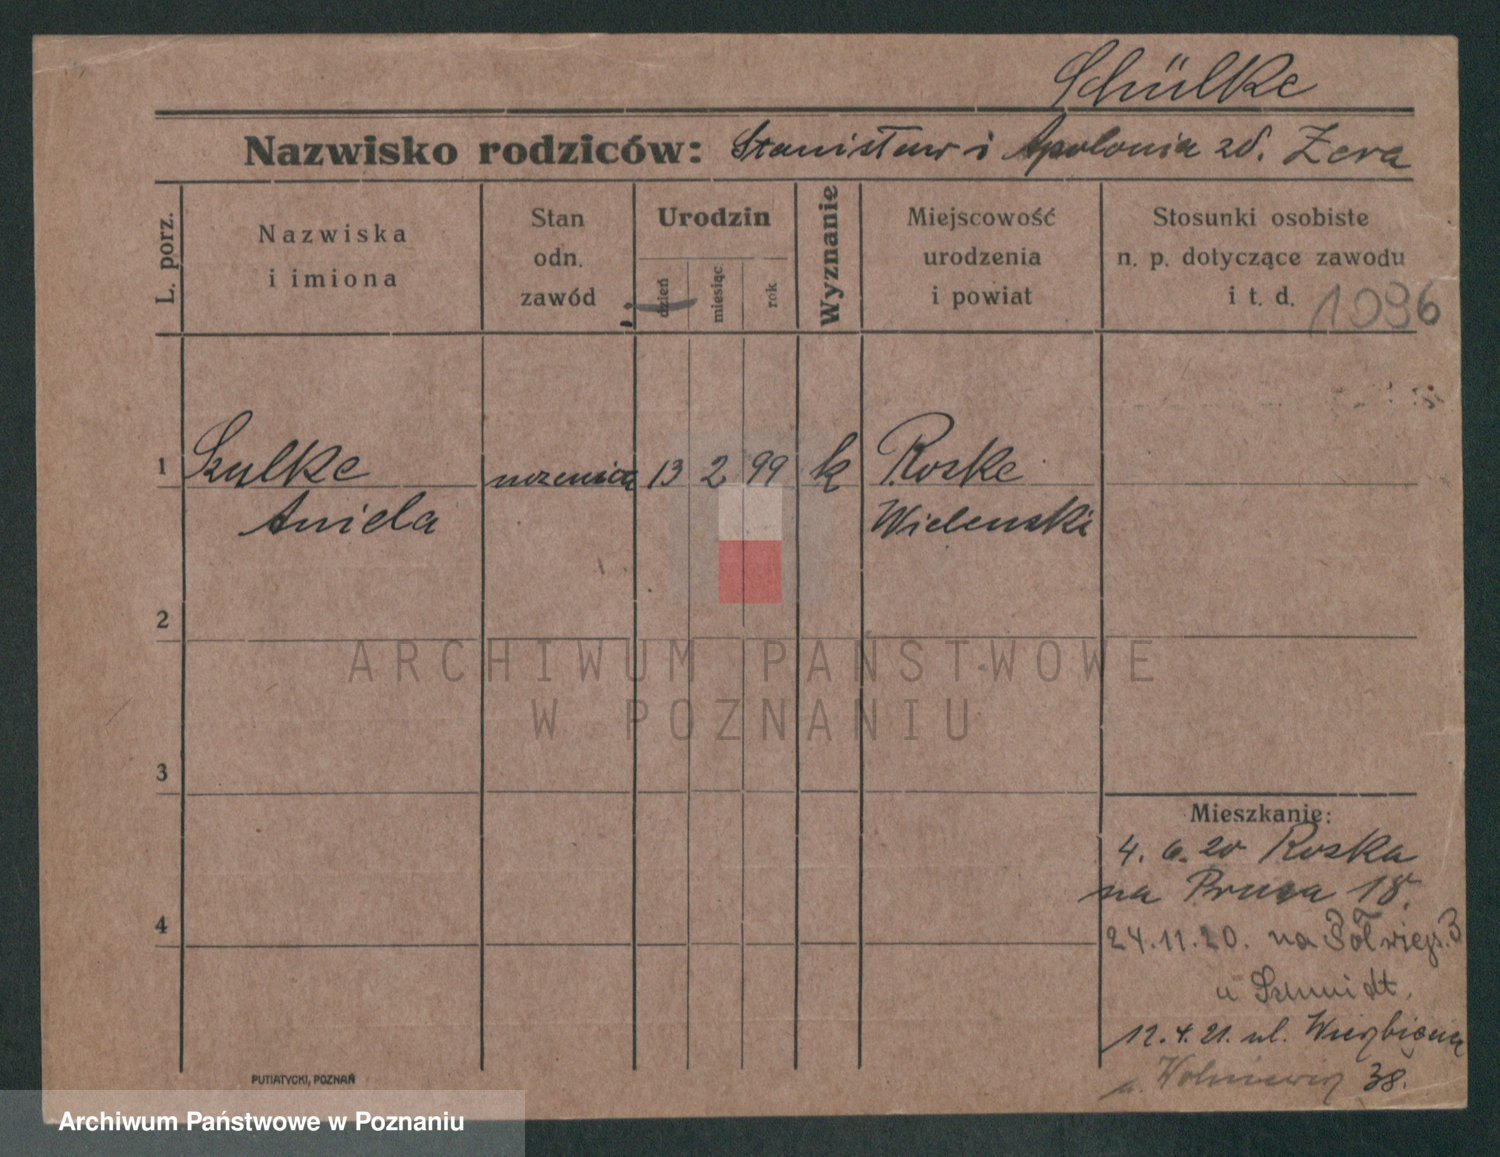 Schülke
Nazwisko rodziców: Stanisław i Apolonia zd. Zera
L. porz.
Nazwiska
i imiona
Stan
odn.
zawód
Urodzin
dzień
miesiąc
rok
Wyznanie
Miejscowość
urodzenia
i powiat
Stosunki osobiste
n. p. dotyczące zawodu
i t. d.
1096
1 Szulke 13 2 99 k Roske
Aniela Wielenski
2
3
4
Mieszkanie:
4. 6. 20 Roska
na 18.
24.11.20. na Półwiejs. 3
u Schmidt.
12.4.21. ul.
u. 38.
PUTIATYCKI, POZNAŃ
ARCHIWUM PAŃSTWOWE
W POZNANIU
Archiwum Państwowe w Poznaniu